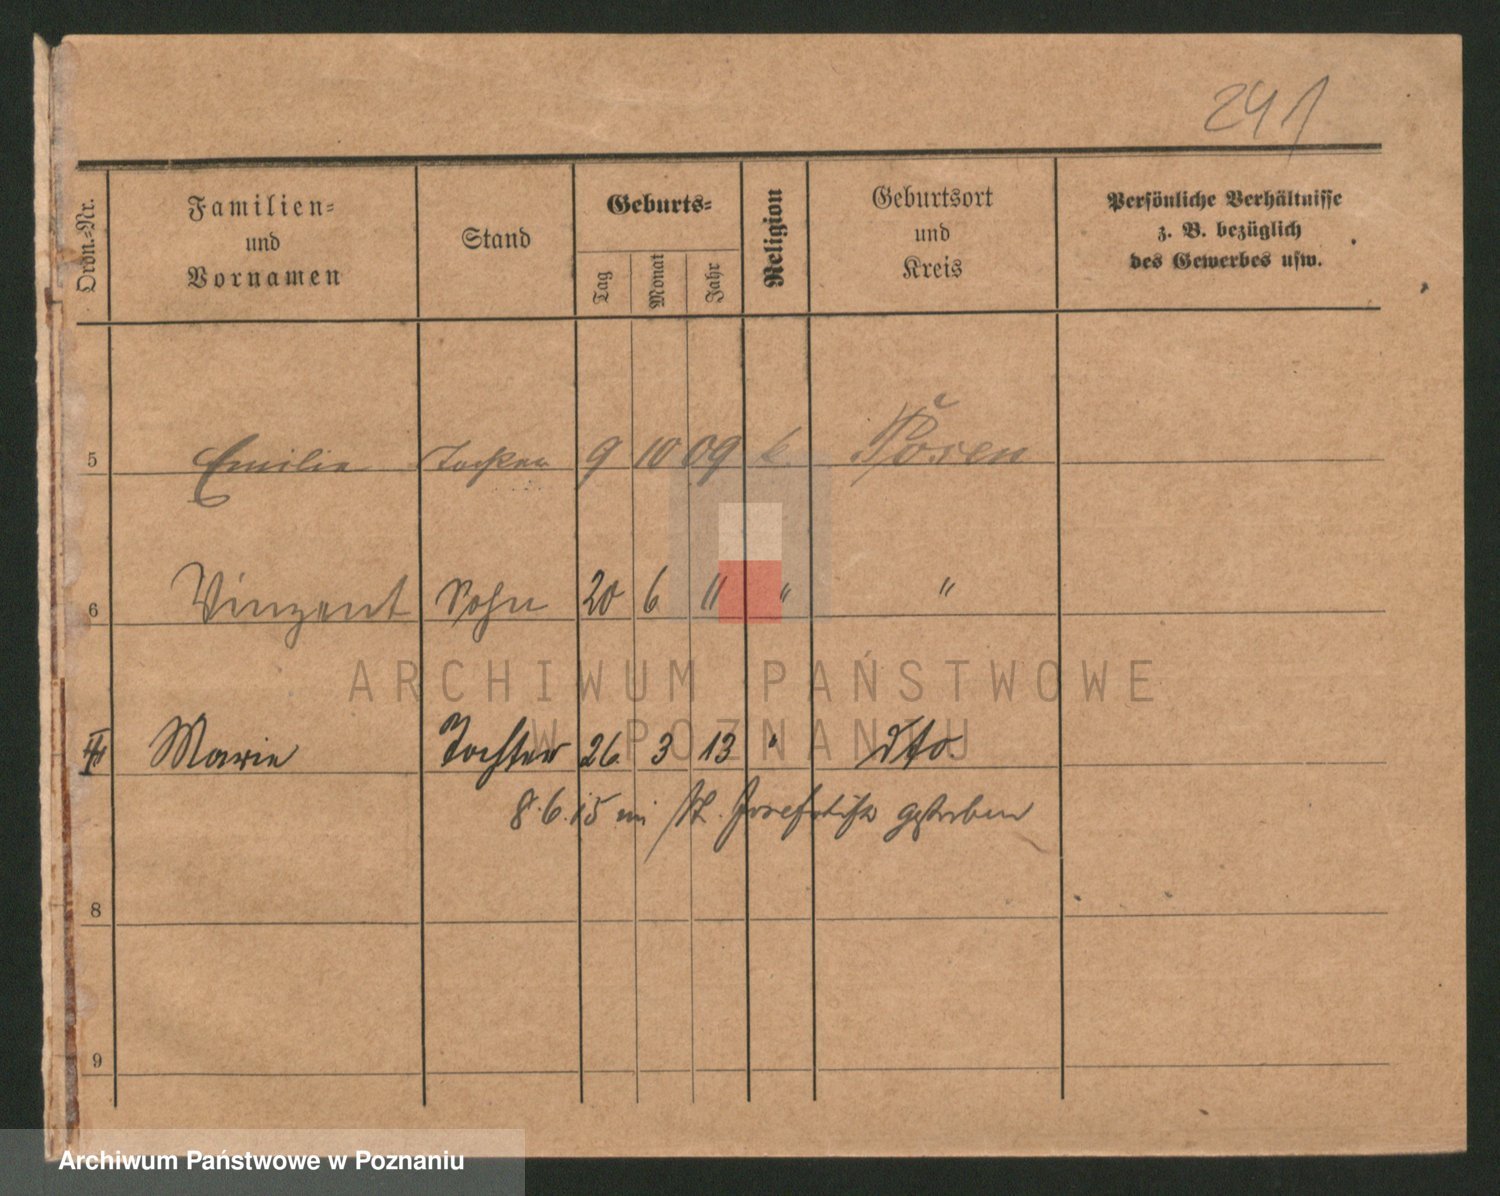 241
Ordn.-Nr.
Familien-
und
Vornamen
Stand
Geburts-
Tag
Monat
Jahr
Religion
Geburtsort
und
Kreis
Persönliche Verhältnisse
z. B. bezüglich
des Gewerbes usw.
5 Emilie Tochter 9 10 09 k. Posen
6 Vinzent Sohn 20 6 11 " "
Marie Tochter 26 3 13 " dto.
8.6.15 im St. Josefstift gestorben
8
9
ARCHIWUM PAŃSTWOWE
W POZNANIU
Archiwum Państwowe w Poznaniu